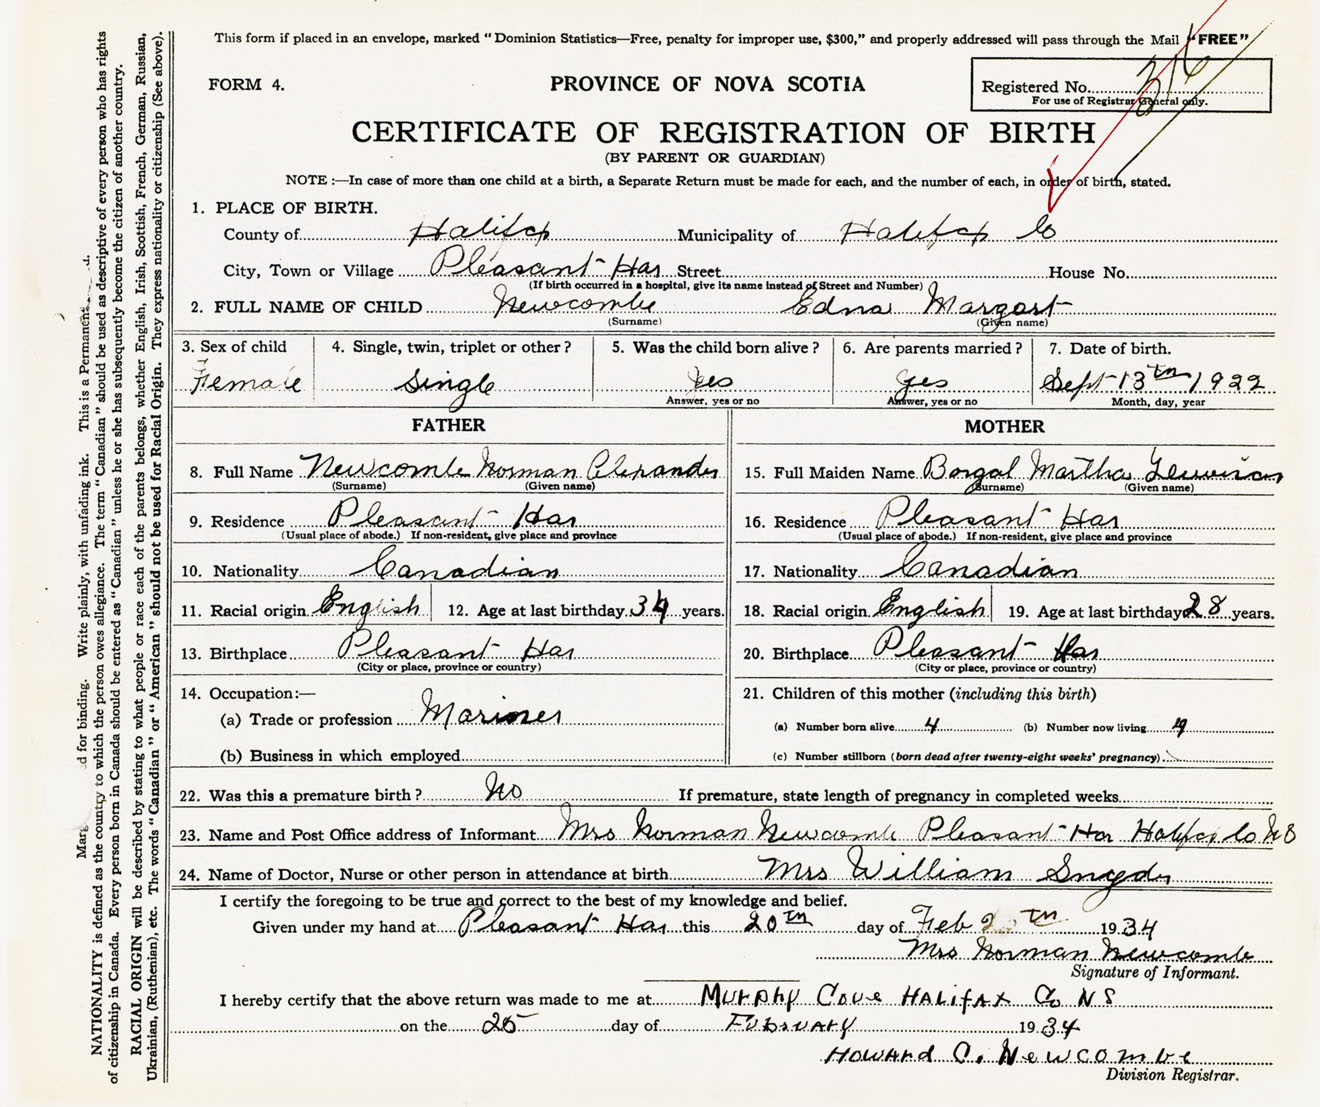 This form if placed in an envelope, marked “Dominion Statistics—Free, penalty for improper use, $300,” and properly addressed will pass through the Mail “FREE”
FORM 4.
PROVINCE OF NOVA SCOTIA
Registered No. 316
For use of Registrar General only.
CERTIFICATE OF REGISTRATION OF BIRTH
(BY PARENT OR GUARDIAN)
NOTE :—In case of more than one child at a birth, a Separate Return must be made for each, and the number of each, in order of birth, stated.
1. PLACE OF BIRTH.
County of Halifax Municipality of Halifax Co
City, Town or Village Pleasant Har Street House No.
(If birth occurred in a hospital, give its name instead of Street and Number)
2. FULL NAME OF CHILD Newcombe Edna Margart
(Surname) (Given name)
3. Sex of child 4. Single, twin, triplet or other ? 5. Was the child born alive ? 6. Are parents married ? 7. Date of birth.
Female Single Yes Yes Sept 13th 1922
Answer, yes or no Answer, yes or no Month, day, year
FATHER MOTHER
8. Full Name Newcombe Norman Alexander 15. Full Maiden Name Borgal Martha
(Surname) (Given name) (Surname) (Given name)
9. Residence Pleasant Har 16. Residence Pleasant Har
(Usual place of abode.) If non-resident, give place and province (Usual place of abode.) If non-resident, give place and province
10. Nationality Canadian 17. Nationality Canadian
11. Racial origin English 12. Age at last birthday 34 years. 18. Racial origin English 19. Age at last birthday 28 years.
13. Birthplace Pleasant Har 20. Birthplace Pleasant Har
(City or place, province or country) (City or place, province or country)
14. Occupation:— 21. Children of this mother (including this birth)
(a) Trade or profession Mariner (a) Number born alive 4 (b) Number now living 4
(b) Business in which employed (c) Number stillborn (born dead after twenty-eight weeks' pregnancy)
22. Was this a premature birth ? No If premature, state length of pregnancy in completed weeks
23. Name and Post Office address of Informant Mrs Norman Newcombe Pleasant Har Halifax Co NS
24. Name of Doctor, Nurse or other person in attendance at birth Mrs William Snyder
I certify the foregoing to be true and correct to the best of my knowledge and belief.
Given under my hand at Pleasant Har this 20th day of Feb 20th 1934
Mrs Norman Newcombe
Signature of Informant.
I hereby certify that the above return was made to me at Murphy Cove Halifax Co NS
on the 25 day of February 1934
Howard C. Newcombe
Division Registrar.
for binding. Write plainly, with unfading ink. This is a Permanent
NATIONALITY is defined as the country to which the person owes allegiance. The term “Canadian” should be used as descriptive of every person who has rights
of citizenship in Canada. Every person born in Canada should be entered as “Canadian” unless he or she has subsequently become the citizen of another country.
RACIAL ORIGIN will be described by stating to what people or race each of the parents belongs, whether English, Irish, Scottish, French, German, Russian,
Ukrainian, (Ruthenian), etc. The words “Canadian” or “American” should not be used for Racial Origin. They express nationality or citizenship (See above).